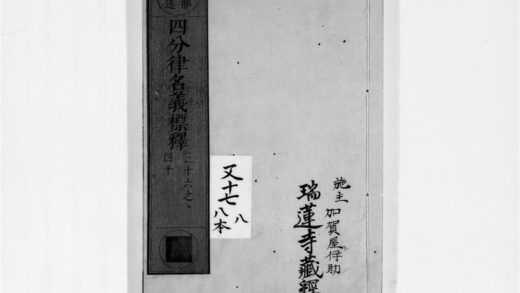 施主
加賀屋伊助
瑞蓮寺藏經
四分律名義標釋
三十六之
四十
又十七
八
八本